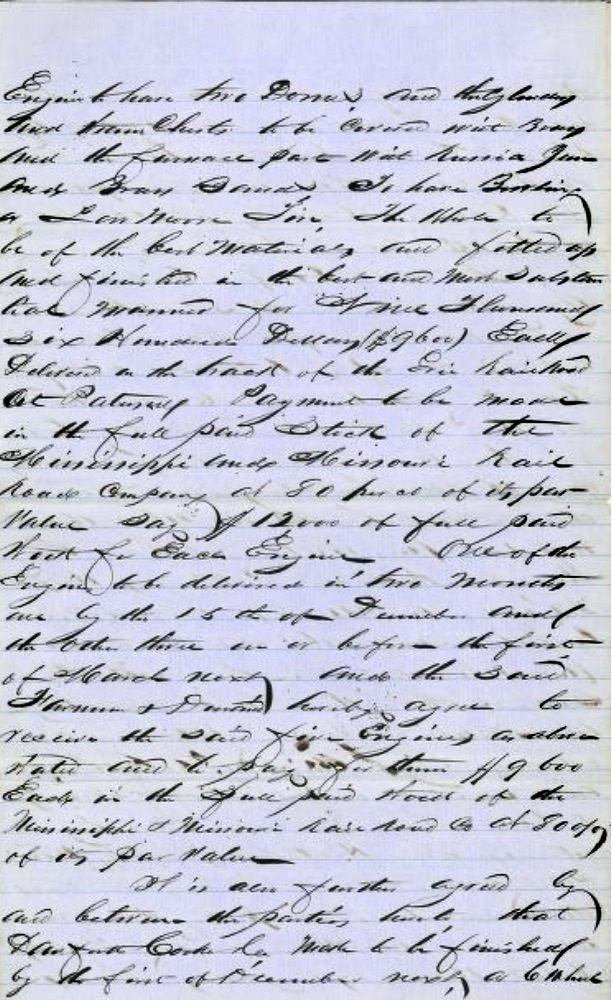 Engine to have two Domes, and the Cylinders
and Steam Chests to be Covered with Brass
and the furnace part with Russia Iron
and Brass Bands To have Bowling
or Low Moore Tire, The whole to
be of the best Materials, and fitted up
and finished in the best and most Substan
tial manner for Nine Thousand
Six Hundred Dollars ($9600) Each
Delivered on the track of the Erie Railroad
At Paterson Payment to be made
in the full paid Stock of the
Mississippi and Missouri Rail
Road Company at 80 per ct of its par
Value Say $12000 of full paid
Stock for Each Engine One of the
Engines to be delivered in two Months
one by the 15th of December and
the other three on or before the first
of March next and the said
Farnum & Durant hereby agree to
receive the said five Engines as above
stated and to pay for them $9600
Each in the full paid Stock of the
Mississippi & Missouri Rail Road Co at 80 %
of its par Value
It is also further agreed by
and between the parties hereto that
Danforth Cooke Co Made to be finished
by the first of December next, a 6 Wheel